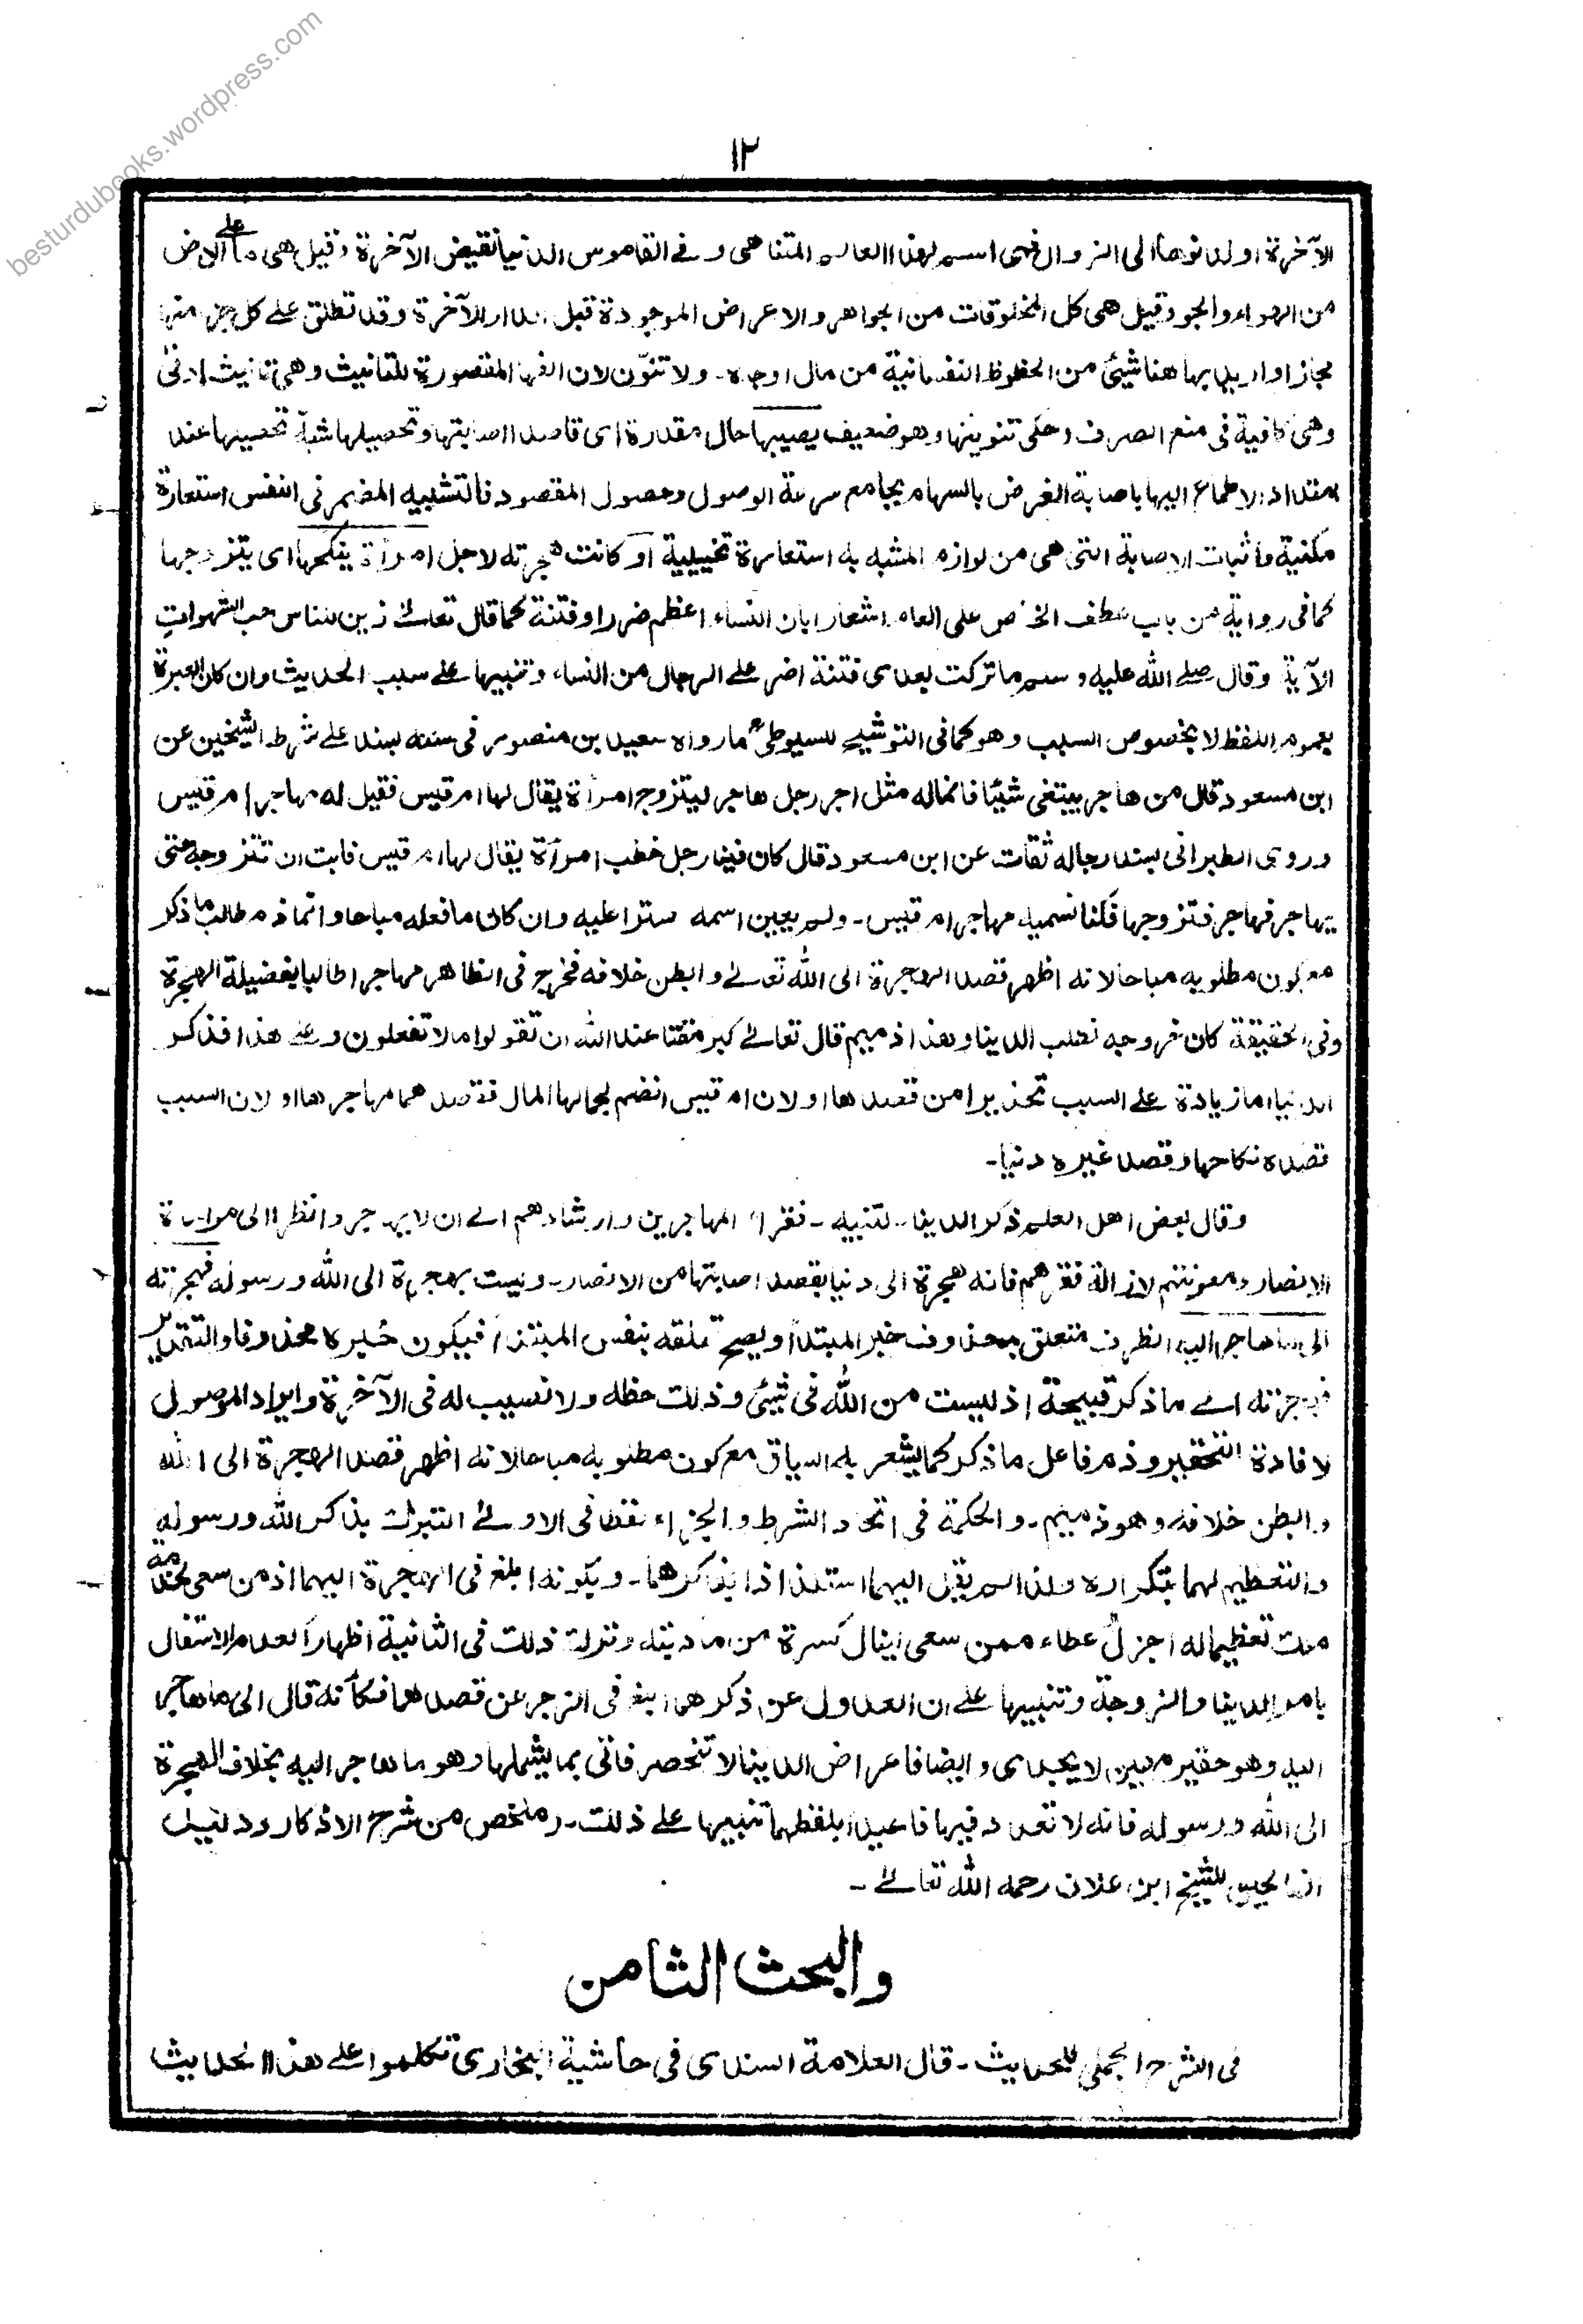 besturdubooks.wordpress.com
١٢
الآخرة اولدنوها الى الزوال فهى اسم لهذا العالم المتناهى و فى القاموس الدنيا نقيض الآخرة وقيل هى ما على الارض
من الهواء والجو وقيل هى كل المخلوقات من الجواهر والاعراض الموجودة قبل الدار الآخرة وقد تطلق على كل جزء منها
مجازا واريد بها هنا شيئ من الحظوظ النفسانية من مال اوجاه ۔ ولا تنوّن لان الفها المقصورة للتانيث وهى تانيث ادنى
وهى كافية فى منع الصرف وحكى تنوينها وهو ضعيف يصيبها حال مقدرة اى قاصدا اصابتها وتحصيلها شبه تحصيلها عند
امتداد الاطماع اليها باصابة الغرض بالسهام بجامع سرعة الوصول وحصول المقصود فالتشبيه المضمر فى النفس استعارة
مكنية واثبات الاصابة التى هى من لوازم المشبه به استعارة تخييلية او كانت هجرته لاجل امرأة ينكحها اى يتزوجها
كما فى رواية من باب عطف الخاص على العام اشعارا بان النساء اعظم ضررا وفتنة كما قال تعالى زين للناس حب الشهوات
الآية وقال صلے الله عليه وسلم ما تركت بعدى فتنة اضر على الرجال من النساء وتنبيها على سبب الحديث وان كان العبرة
بعموم اللفظ لا بخصوص السبب وهو كما فى التوشيح للسيوطى مارواه سعيد بن منصور فى سننه بسند على شرط الشيخين عن
ابن مسعود قال من هاجر يبتغى شيئا فانما له مثل اجر رجل هاجر ليتزوج امرأة يقال لها ام قيس فقيل له مهاجر ام قيس
وروى الطبرانى بسند رجاله ثقات عن ابن مسعود قال كان فينا رجل خطب امرأة يقال لها ام قيس فابت ان تتزوجه حتى
يهاجر فهاجر فتزوجها فكنا نسميه مهاجر ام قيس ۔ ولم يعين اسمه سترا عليه وان كان ما فعله مباحا وانما ذم طالب ما ذكر
مع كون مطلوبه مباحا لانه اظهر قصد الهجرة الى الله تعالى وابطن خلافه فخرج فى الظاهر مهاجرا طالبا بفضيلة الهجرة
وفى الحقيقة كان خروجه لطلب الدنيا وهذا ذميم قال تعالى كبر مقتا عند الله ان تقولوا ما لا تفعلون وعلى هذا فذكر
الدنيا اما زيادة على السبب تحذيرا من قصدها او لان ام قيس انضم لجمالها المال فقصدهما مهاجرها او لان السبب
قصده نكاحها وقصد غيره دنيا ۔
وقال بعض اهل العلم ذكر الدنيا لتنبيه ۔ فقراء المهاجرين وارشادهم الى ان لا يهاجروا نظرا الى مواساة
الانصار ومعونتهم لازالة فقرهم فانه هجرة الى دنيا بقصد اصابتها من الانصار ۔ وليست بهجرة الى الله ورسوله فهجرته
الى ما هاجر اليه الظرف متعلق بمحذوف خبر المبتدأ ويصح تعلقه بنفس المبتدأ فيكون خبره محذوفا والتقدير
فهجرته الى ما ذكر قبيحة اذ ليست من الله فى شيئ وذلك حظه ولا نصيب له فى الآخرة وايراد الموصول
لافادة التحقير وذم فاعل ما ذكر كما يشعر به السياق مع كون مطلوبه مباحا لانه اظهر قصد الهجرة الى الله
وابطن خلافه وهو ذميم ۔ والحكمة فى اتحاد الشرط والجزاء لفظا فى الاولى التبرك بذكر الله ورسوله
والتعظيم لهما بتكراره ... استلذاذا بذكرهما ۔ وبكونه ابلغ فى الهجرة اليهما اذ من سعى لخدمة
ملك تعظيما له اجزل عطاء ممن سعى لينال كسرة من مأدبته وترك ذلك فى الثانية اظهارا لعدم الاحتفال
بامر الدنيا والزوجة وتنبيها على ان العدول عن ذكرهما ابلغ فى الزجر عن قصدهما فكأنه قال الى ما هاجر
اليه وهو حقير مهين لا يجدى وايضا فاعراض الدنيا لا تنحصر فاتى بما يشملها وهو ما هاجر اليه بخلاف الهجرة
الى الله ورسوله فانه لا تعدد فيها فاعيدا بلفظهما تنبيها على ذلك ۔ رملخص من شرح الاذكار ودليل
الفالحين للشيخ ابن علان رحمه الله تعالى ۔
والبحث الثامن
فى الشرح الجملى للحديث ۔ قال العلامة السندى فى حاشية البخارى تكلموا على هذا الحديث